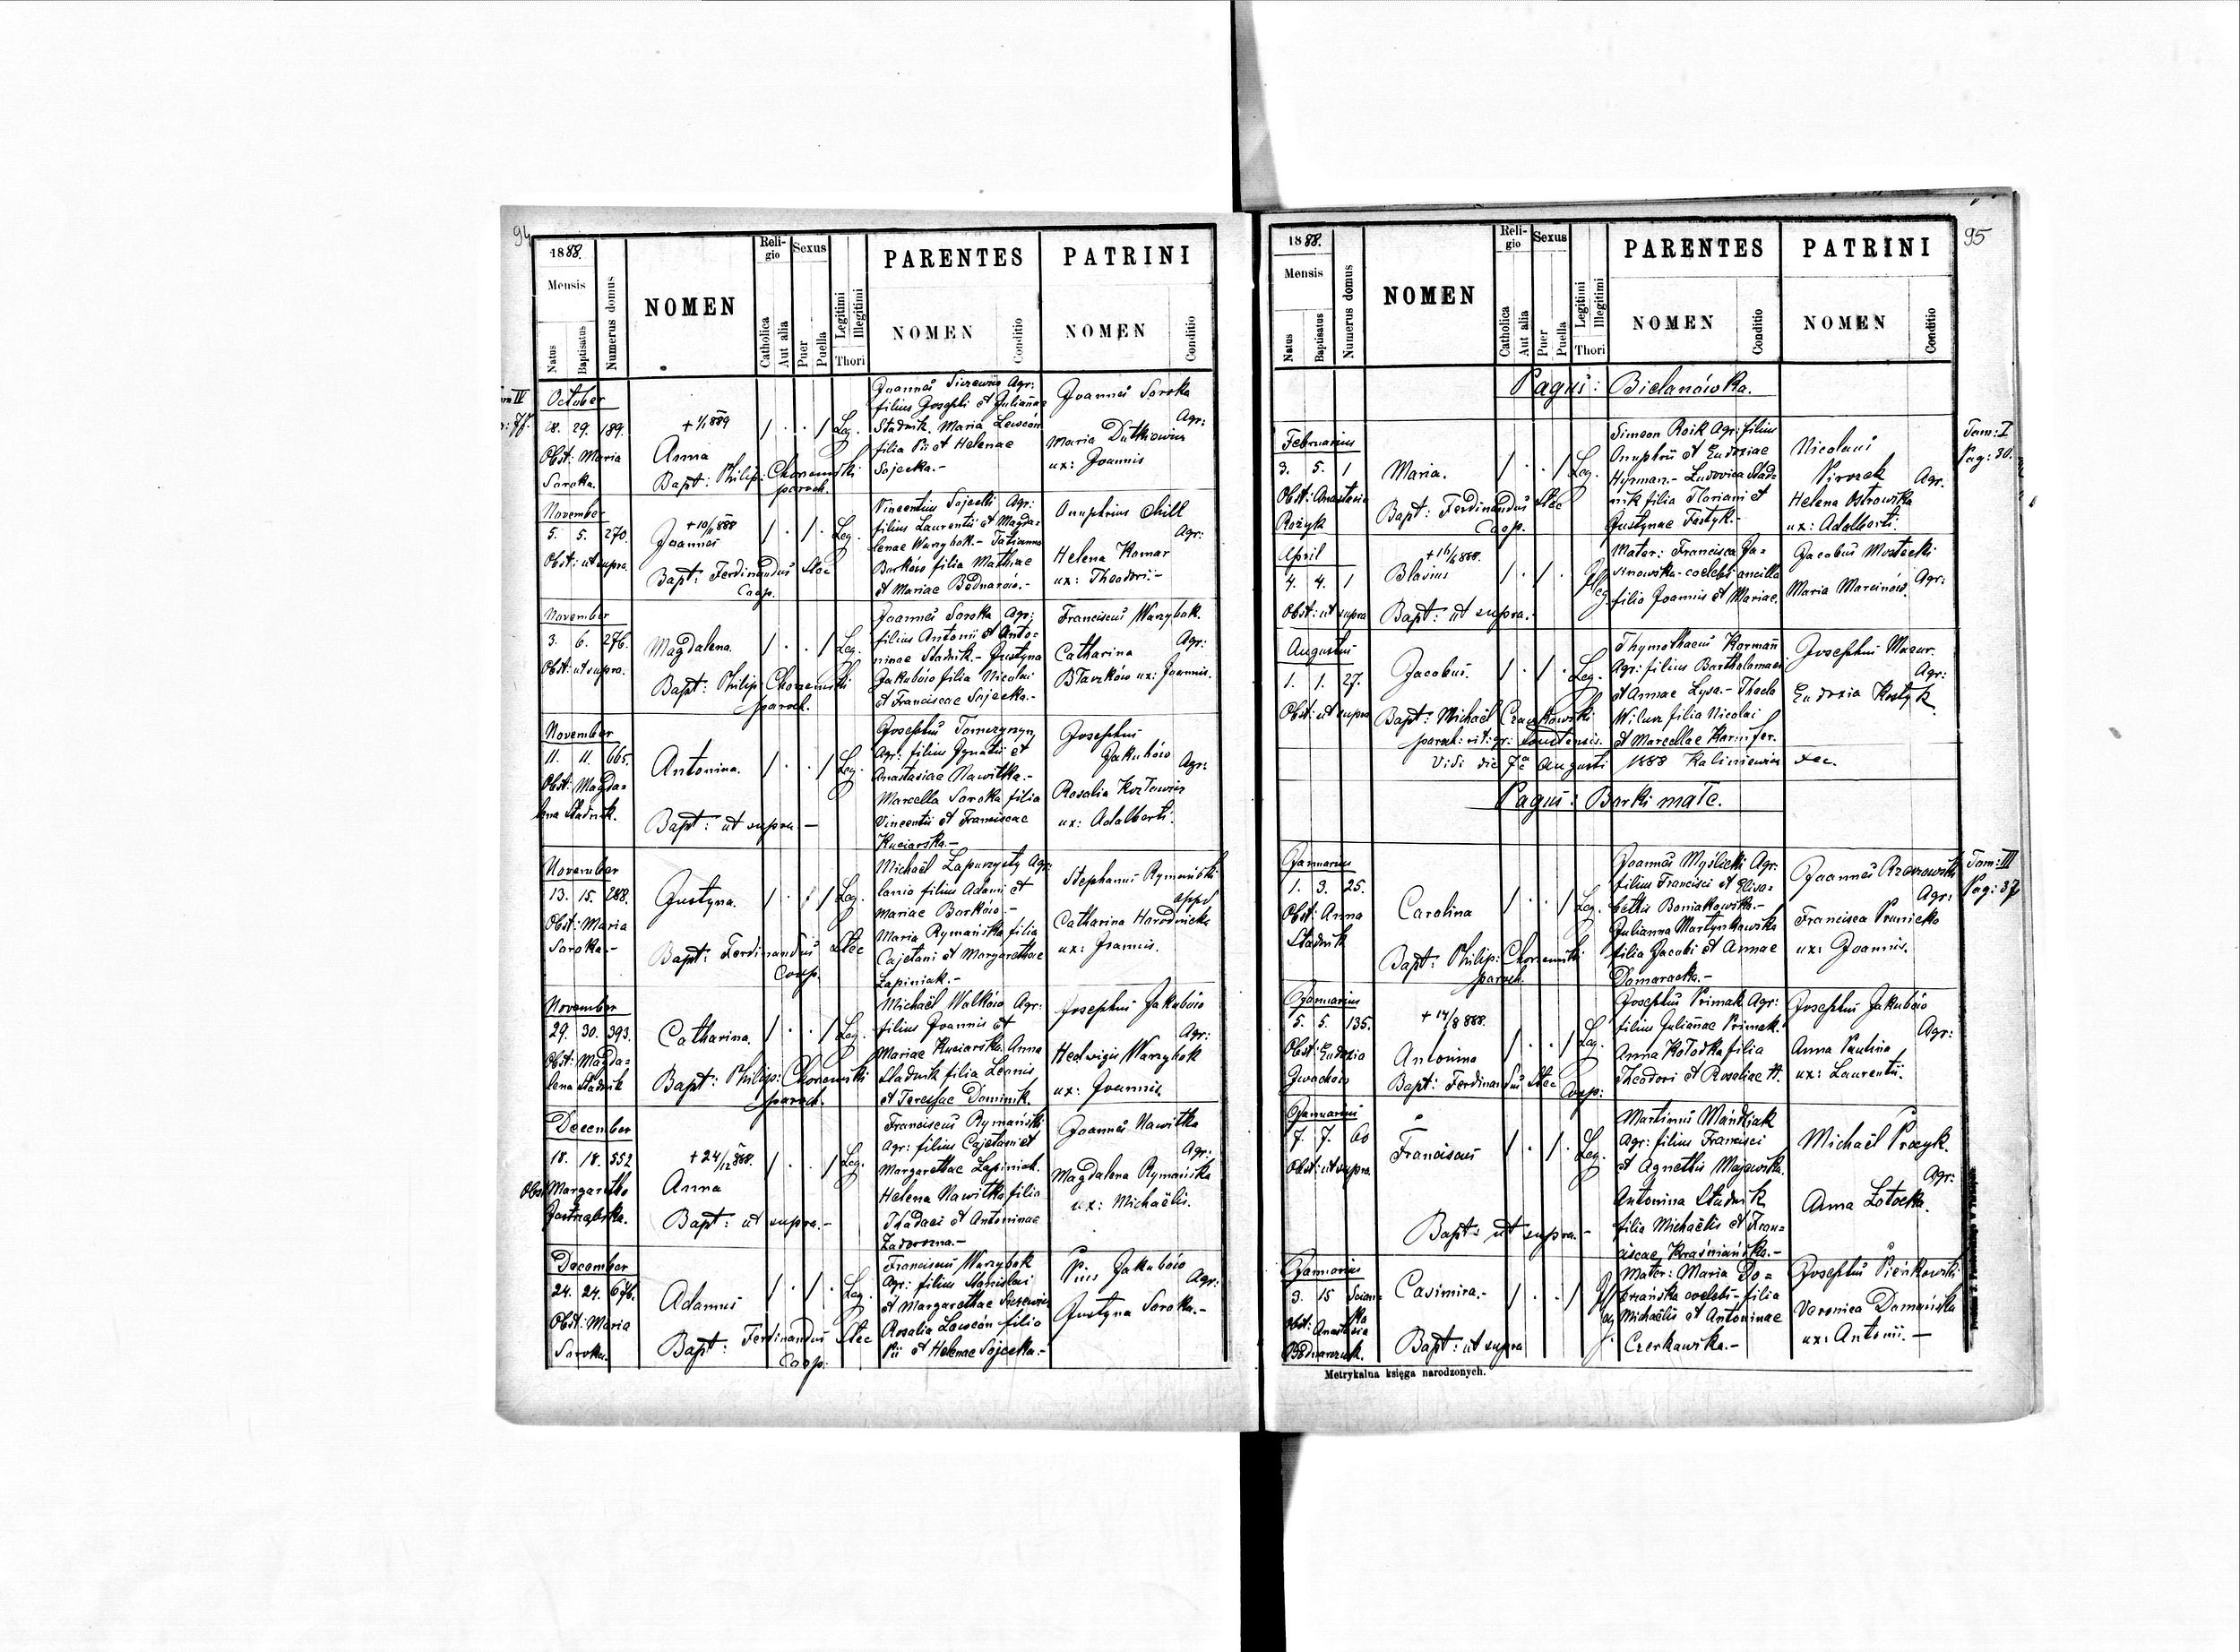 94
1888.
Mensis
Natus
Baptisatus
Numerus domus
NOMEN
Religio
Catholica
Aut alia
Sexus
Puer
Puella
Legitimi
Illegitimi
Thori
PARENTES
NOMEN
Conditio
PATRINI
NOMEN
Conditio
October
29. 189.
Obst: Maria
Soroka.
+ 1/1 889
Anna
Bapt: Philip: Chonemski
paroch.
Leg.
Joannes Siczewicz Agr:
filius Josephi et Julianae
Stadnik. Maria Lewcón
filia Pii et Helenae
Sojecka.-
Joannes Soroka
Agr:
Maria Dutkiewicz
ux: Joannis
November
5. 5. 270.
Obst: ut supra.
+ 10/11 888
Joannes
Bapt: Ferdinandus Stec
Coop.
Leg.
Vincentius Sojecki Agr:
filius Laurentii et Magda=
lenae Warzybok.- Tatianna
Borków filia Mathiae
et Mariae Bednarów.-
Onuphrius Chill
Agr:
Helena Komar
ux: Theodori.-
November
3. 6. 276.
Obst: ut supra.
Magdalena.
Bapt: Philip: Chonemski
paroch.
Leg.
Joannes Soroka Agr:
filius Antonii et Anto=
ninae Stadnik.- Justyna
Jakubów filia Nicolai
et Franciscae Sojecka.-
Franciscus Warzybok.
Agr:
Catharina
Błaszków ux: Joannis.
November
11. 11. 665.
Obst: Magda=
lena Stadnik.
Antonina.
Bapt: ut supra.-
Leg.
Josephus Tomczyszyn
Agr: filius Ignatii et
Anastasiae Nawitka.-
Marcella Soroka filia
Vincentii et Franciscae
Kuciarska.-
Josephus
Jakubów
Agr:
Rosalia Kozłowicz
ux: Adalberti.
November
13. 15. 288.
Obst: Maria
Soroka.-
Justyna.
Bapt: Ferdinandus Stec
Coop.
Leg.
Michaël Lapurzysty Agr:
lanio filius Adami et
Mariae Borków.-
Maria Rymańska filia
Cajetani et Margarethae
Lapiniak.-
Stephanus Rymański
Catharina Horodnicka
ux: Joannis.
November
29. 30. 393.
Obst: Magda=
lena Stadnik
Catharina.
Bapt: Philip: Chonemski
paroch.
Leg.
Michaël Walków Agr:
filius Joannis et
Mariae Kuciarska. Anna
Stadnik filia Leonis
et Teressae Dominik.
Josephus Jakubów
Agr:
Hedwigis Warzybok
ux: Joannis.
December
18. 18. 552
Obst: Margaretha
Jastrząbska.
+ 24/12 888.
Anna
Bapt: ut supra.-
Leg.
Franciscus Rymański
Agr: filius Cajetani et
Margarethae Lapiniak.
Helena Nawitka filia
Thadaei et Antoninae
Zadorozna.-
Joannes Nawitka
Agr:
Magdalena Rymańska
ux: Michaëlis.
December
24. 24. 676.
Obst: Maria
Soroka.
Adamus
Bapt: Ferdinandus Stec
Coop.
Leg.
Franciscus Warzybok
Agr: filius Stanislai
et Margarethae Siczewicz
Rosalia Lewcón filia
Pii et Helenae Sojecka.-
Pius Jakubów
Agr:
Justyna Soroka.-
95
1888.
Mensis
Natus
Baptisatus
Numerus domus
NOMEN
Religio
Catholica
Aut alia
Sexus
Puer
Puella
Legitimi
Illegitimi
Thori
PARENTES
NOMEN
Conditio
PATRINI
NOMEN
Conditio
Pagus: Bielanówka.
Februarius
3. 5. 1
Obst: Anastasia
Rożyk
Maria.
Bapt: Ferdinandus Stec
Coop.
Leg.
Simeon Roik Agr: filius
Onuphrii et Eudoxiae
Hyrman.- Ludovica Stad=
nik filia Floriani et
Justynae Fostyk.-
Nicolaus
Pirozek
Agr.
Helena Ostrowska
ux: Adalberti.
Tom: I
Pag: 30.
April
4. 4. 1
Obst: ut supra
+ 16/6 888.
Blasius
Bapt: ut supra.
Illeg.
Mater: Francisca Ja=
sinowska- coelebs ancilla
filia Joannis et Mariae.
Jacobus Mostecki
Agr:
Maria Marcinów.
Augustus
1. 1. 27.
Obst: ut supra
Jacobus.
Bapt: Michaël Czaykowski
paroch: rit: gr:
Leg.
Thymothaeus Kormań
Agr: filius Bartholomaei
et Annae Lysa.- Thecla
Wilusz filia Nicolai
et Marcellae Karmfer.
Josephus Mazur.
Agr:
Eudoxia Kostyk
Vidi die 7ª Augusti 1888 Kaliniewicz
Pagus: Borki małe.
Januarius
1. 3. 25.
Obst: Anna
Stadnik
Carolina
Bapt: Philip: Chonemski
paroch.
Leg.
Joannes Myślicki Agr.
filius Francisci et Elisa=
bethis Boniakowska.-
Julianna Martynkowska
filia Jacobi et Annae
Domaracka.-
Joannes Rzeszowski
Agr:
Francisca Prunicka
ux: Joannis.
Tom: III
Pag: 37
Januarius
5. 5. 135.
Obst: Eudoxia
+ 14/8 888.
Antonina
Bapt: Ferdinandus Stec
Coop:
Leg.
Josephus Primak Agr:
filius Julianae Primak.
Anna Kołodka filia
Theodori et Rosaliae H.
Josephus Jakubów
Agr:
Anna Paulina
ux: Laurentii.
Januarius
7. 7. 60
Obst: ut supra.
Franciscus
Bapt: ut supra.-
Leg.
Martinus Mańdziak
Agr: filius Francisci
et Agnethis Majewska.
Antonina Stadnik
filia Michaëlis et Fran=
ciscae Kraśniańska.-
Michaël Prozyk.
Agr:
Anna Łotocka.
Januarius
3. 15
Obst: Anastasia
Bednarczuk.
Casimira.-
Bapt: ut supra
Mater: Maria Do=
brzańska coelebs- filia
Michaëlis et Antoninae
Czerkawska.-
Josephus Pieńkowski
Veronica Domańska
ux: Antonii.-
Metrykalna księga narodzonych.